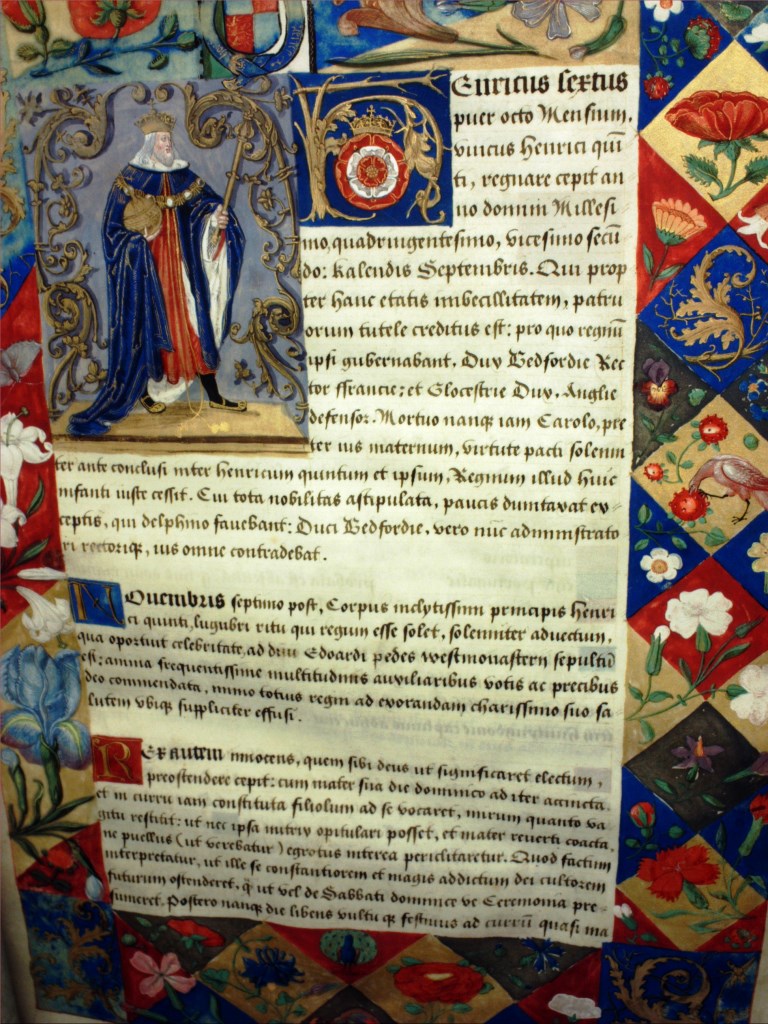 Henricus sextus
puer octo Mensium,
vnicus Henrici quin
ti, regnare cepit an
no domini Millesi
mo, quadringentesimo, vicesimo secū
do: kalendis Septembris. Qui prop
ter hanc etatis imbecillitatem, patru
orum tutele creditus est: pro quo regnū
ipsi gubernabant, Dux Bedfordie Rec
tor ffrancie: et Glocestrie Dux, Anglie
defensor. Mortuo nanq; iam Carolo, pre
ter ius maternum, virtute pacti solenni
ter ante conclusi inter henricum quintum et ipsum, Regnum illud huic
infanti iuste cessit. Cui tota nobilitas astipulata, paucis dumtaxat ex
ceptis, qui delphino fauebant: Duci Bedfordie, vero nūc administrato
ri rectoriq;, ius omne contradebat.
NOuembris septimo post, Corpus inclytissimi principis henri
ci quinti, lugubri ritu qui regum esse solet, solenniter aduectum,
qua oportuit celebritate, ad diui Edoardi pedes westmonasterii sepultū
est: anima frequentissime multitudinis auxiliaribus votis ac precibus
deo commendata, nimio totius regni ad exorandam charissimo suo sa
lutem vbiq; suppliciter effusi.
REx autem innocens, quem sibi deus ut significaret electum,
preostendere cepit: cum mater sua die dominico ad iter accincta,
et in curru iam constituta filiolum ad se vocaret, mirum quanto va
gitu restitit: ut nec ipsa nutrix opitulari posset, et mater reuerti coacta,
ne puellus (ut verebatur) egrotus interea periclitaretur. Quod factum
interpretatur, ut ille se constantiorem et magis addictum dei cultorem
futurum ostenderet, q̄ ut vel de Sabbati dominice ve Ceremonia pre
sumeret. Postero nanq; die libens vultu q; festiuus ad currū quasi ma